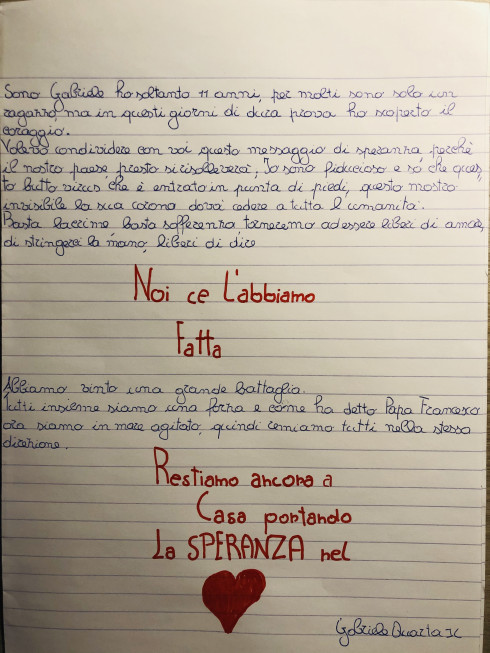 Sono Gabriele ho soltanto 11 anni, per molti sono solo un
ragazzo, ma in questi giorni di dura prova ho scoperto il
coraggio.
Volevo condividere con voi questo messaggio di speranza perchè
il nostro paese presto si risolleverà, Io sono fiducioso e so che ques
to brutto virus che è entrato in punta di piedi, questo mostro
invisibile la sua corona dovrà cedere a tutta l'umanità.
Basta lacrime, basta sofferenza, torneremo ad essere liberi di amare,
di stringerci la mano, liberi di dire
Noi ce L'abbiamo
Fatta
Abbiamo vinto una grande battaglia.
Tutti insieme siamo una forza e come ha detto Papa Francesco
ora siamo in mare agitato, quindi remiamo tutti nella stessa
direzione.
Restiamo ancora a
Casa portando
La SPERANZA nel
Gabriele Quarta